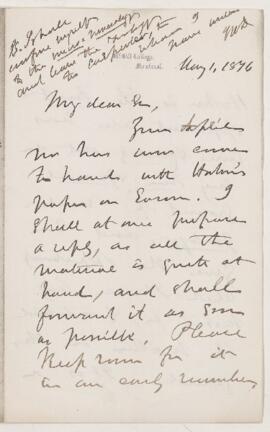 P.S. I shall
confine myself
to the mineralogy
and leave the zoology
to Carpenter, to
whom I
have written
JWD
McGill College,
Montreal.
May 1, 1876
My dear Sir,
Your
no has now come
to hand with Hahn's
paper on Eozoon. I
shall at once prepare
a reply, as all the
material is quite at
hand, and shall
forward it as soon
as possible. Please
keep room for it
in an early number,